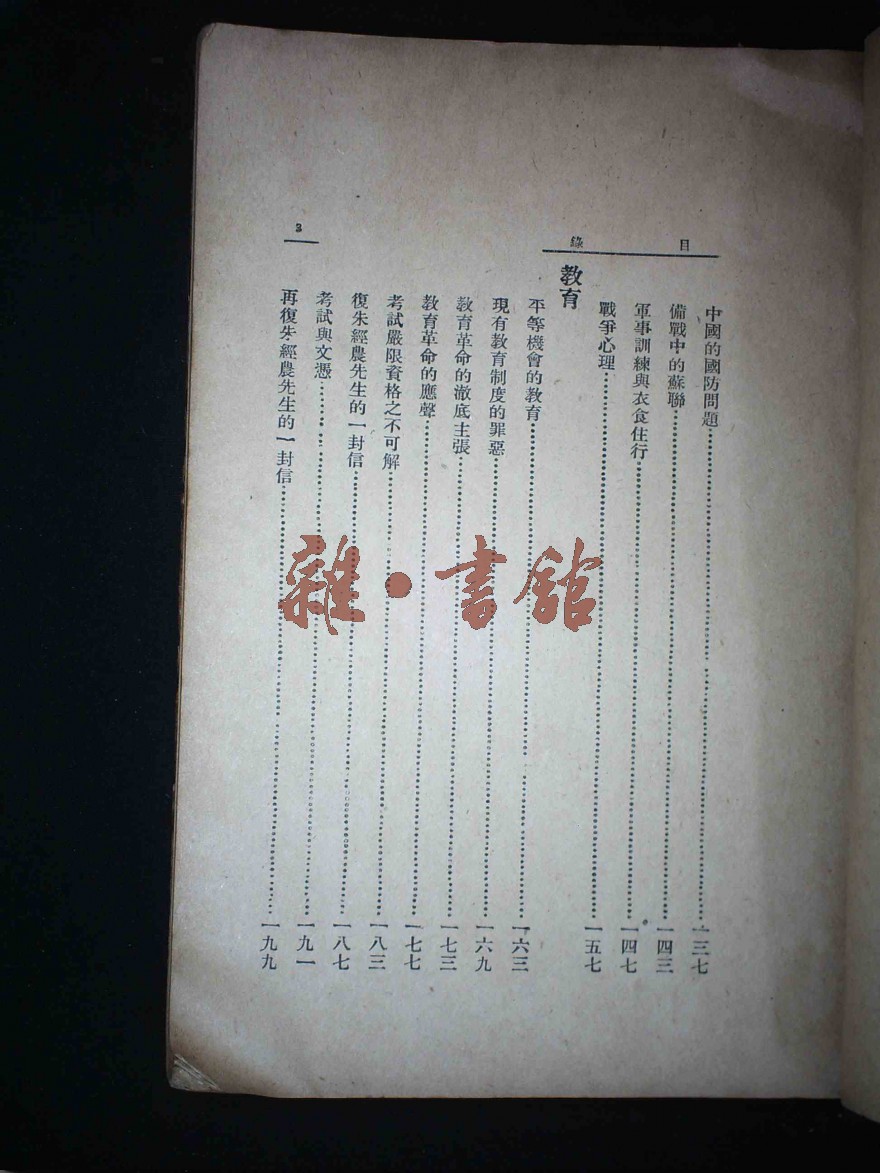 目錄
中國的國防問題……一三七
備戰中的蘇聯……一四三
軍事訓練與衣食住行……一四七
戰爭心理……一五七
教育
平等機會的教育……一六三
現有教育制度的罪惡……一六九
教育革命的澈底主張……一七三
教育革命的應聲……一七七
考試嚴限資格之不可解……一八三
復朱經農先生的一封信……一八七
考試與文憑……一九一
再復朱經農先生的一封信……一九九
3
雜·書館